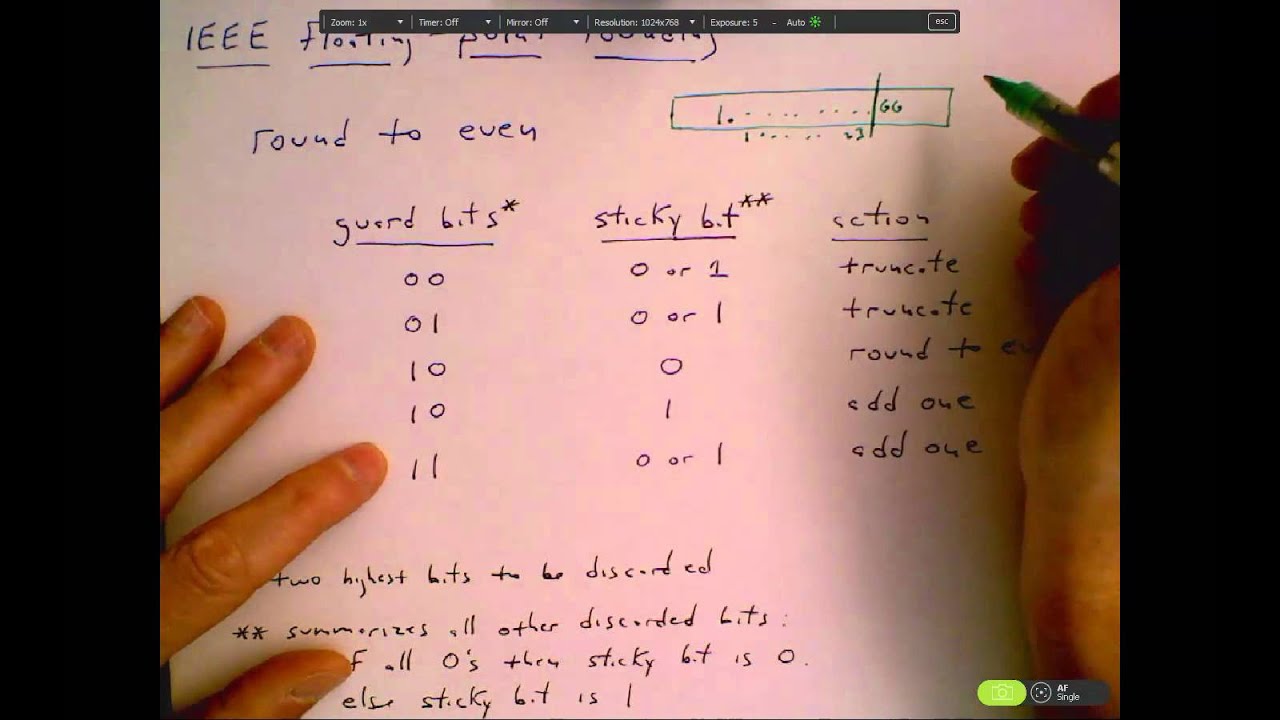 Zoom: 1x Timer: Off Mirror: Off Resolution: 1024x768 Exposure: 5 - Auto esc
IEEE floating-point rounding
1. . . . . . . . GG
1 . . . . . 23
round to even
guard bits* sticky bit** action
00 0 or 1 truncate
01 0 or 1 truncate
10 0 round to
10 1 add one
11 0 or 1 add one
two highest bits to be discarded
** summarizes all other discarded bits:
f all 0's then sticky bit is 0.
else sticky bit is 1
AF
Single